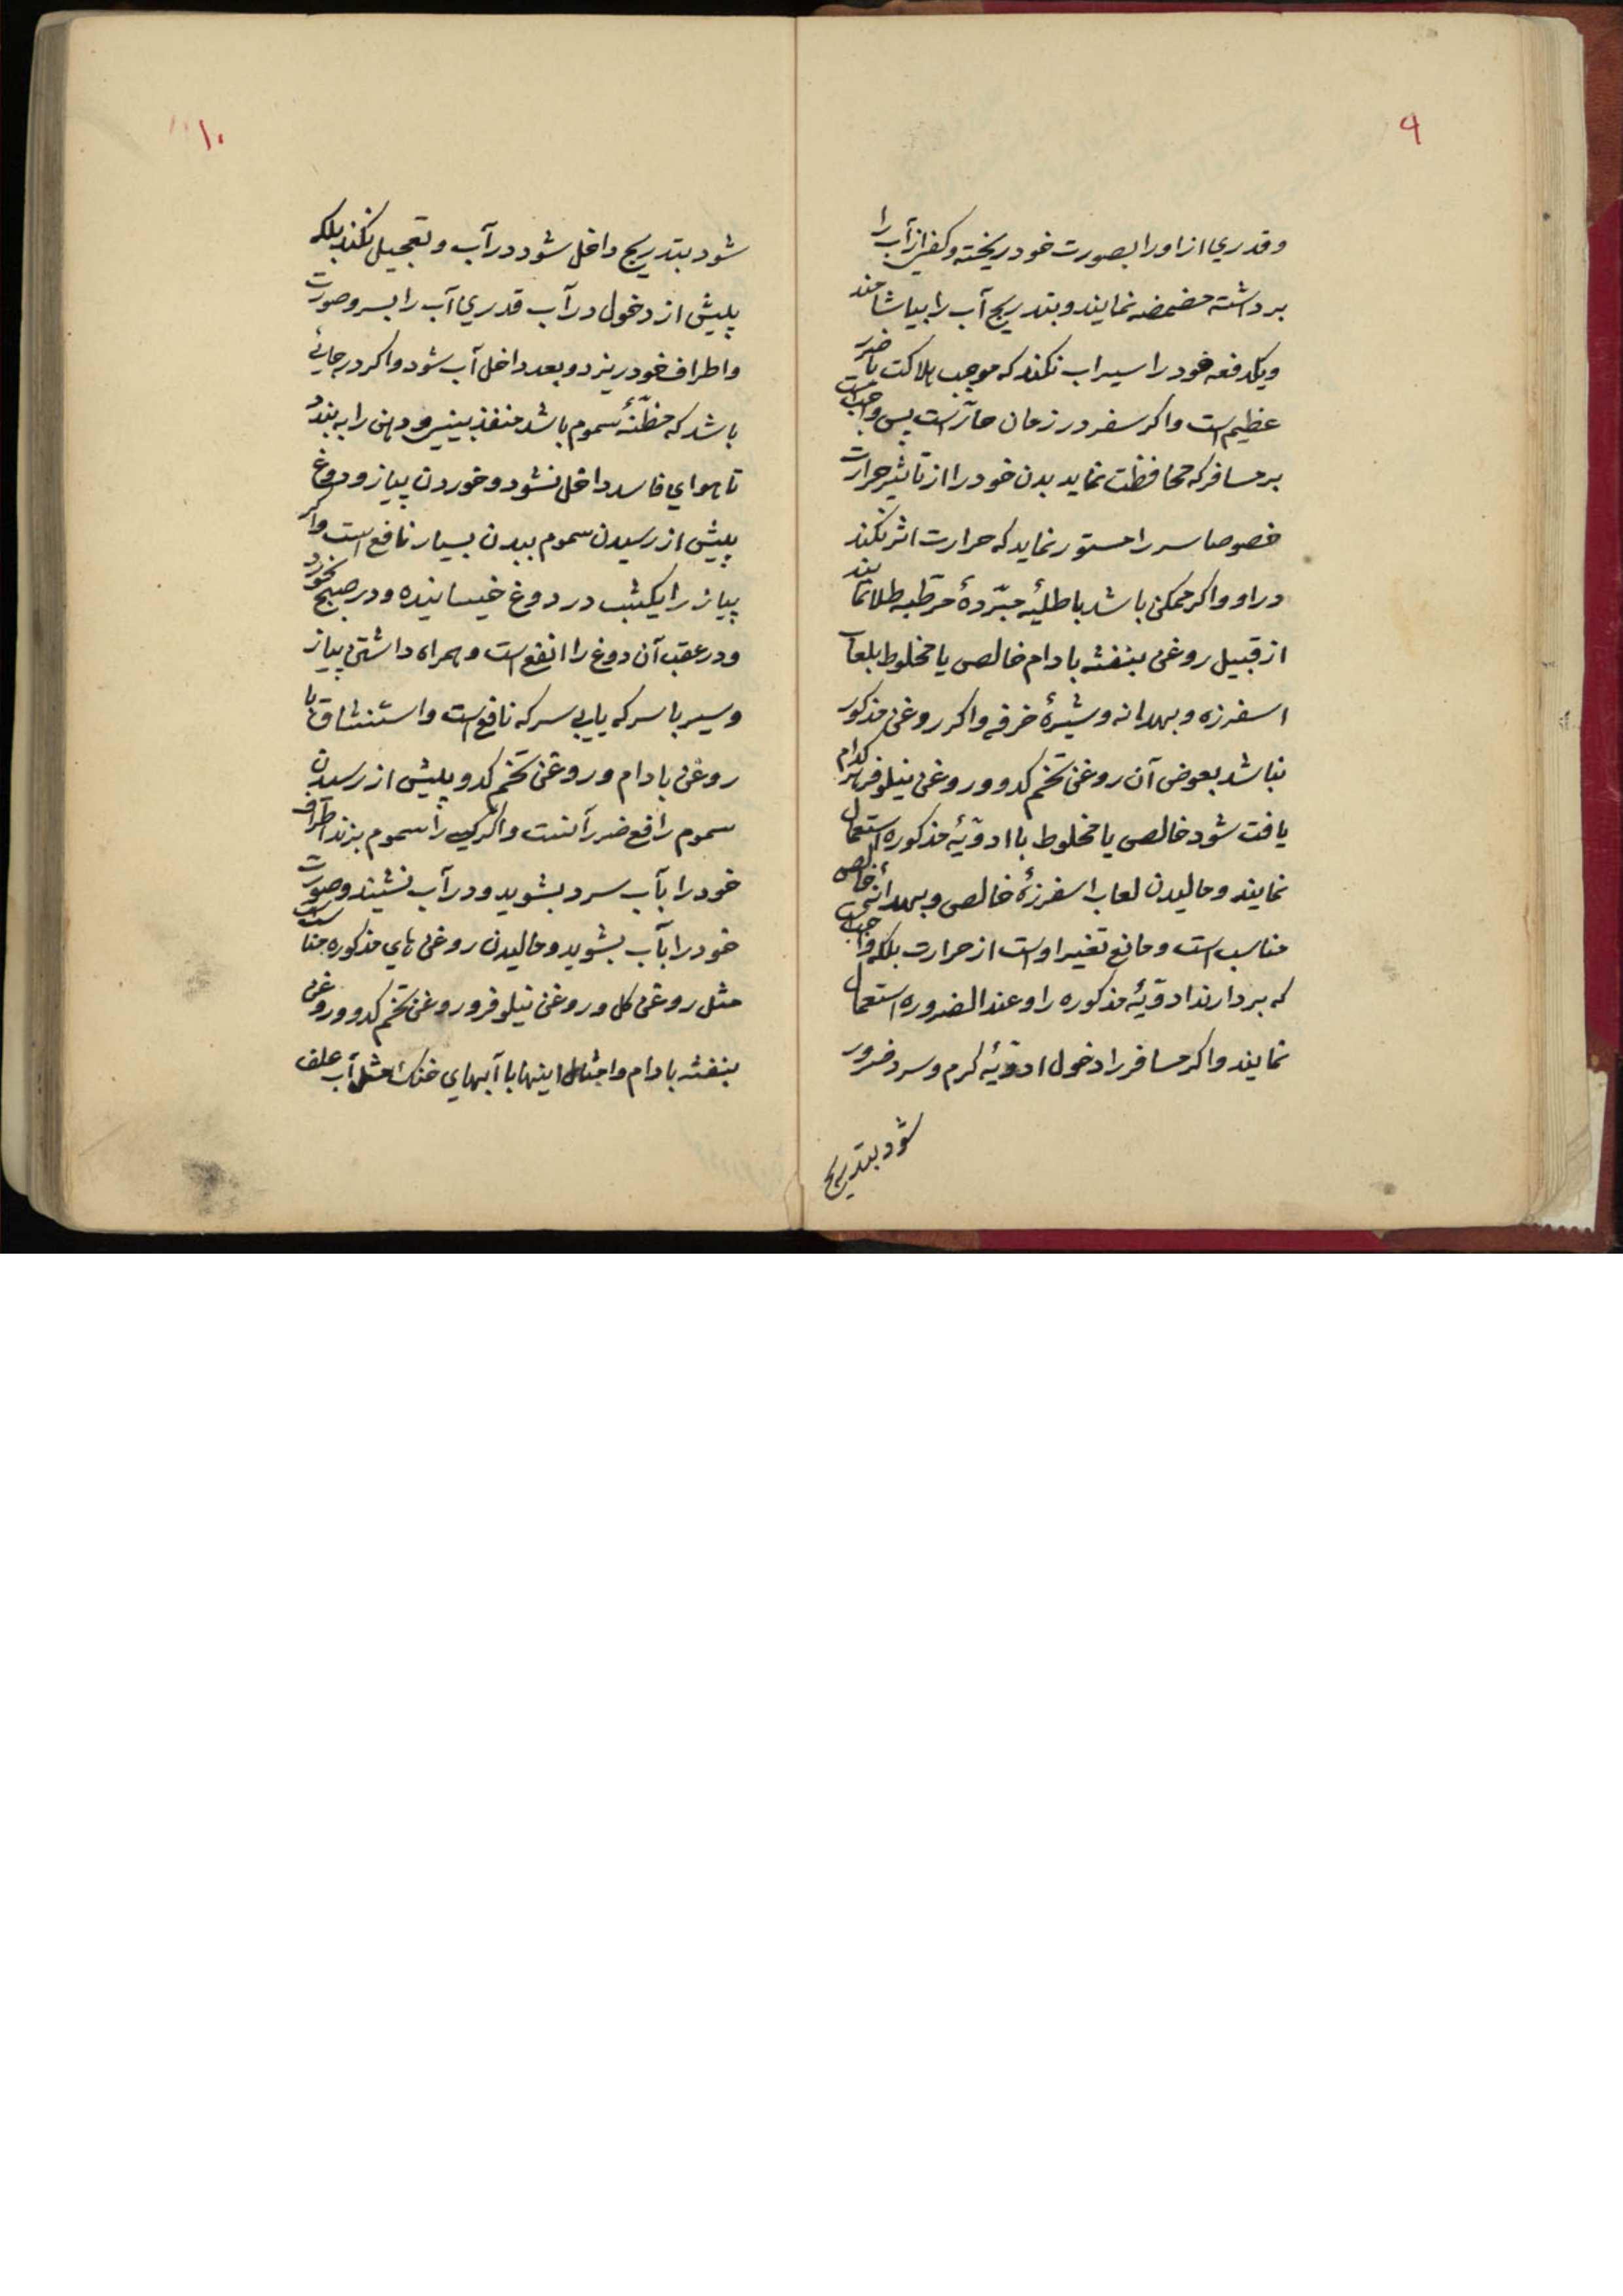 ۹
وقدري از اورا بصورت خود ریخته وکفي از آب را
برداشته مضمضه نمایند وبتدریج آب را بیاشامند
ویکدفعه خود را سیراب نکنند که موجب هلاکت یا ضرر
عظیم است واکر سفر در زمان حارّ است پس واجب است
بر مسافر که محافظت نماید بدن خود را از تاثیر حرارت
خصوصا سر را مستور نماید که حرارت اثر نکند
در او واکر ممکن باشد باطلیهٔ مبرّدهٔ مرطّبه طلا نمایند
از قبیل روغن بنفشه بادام خالص یا مخلوط بلعاب
اسفرزه وبهدانه وشیرهٔ خرفه واکر روغن مذکور
نباشد بعوض آن روغن تخم کدو وروغن نیلوفر هر کدام
یافت شود خالص یا مخلوط با ادویّهٔ مذکوره استعمال
نمایند ومالیدن لعاب اسفرزهٔ خالص وبهدانهٔ خالص
مناسب است ومانع تغیر اوست از حرارت بلکه واجب است
که بردارند ادویّهٔ مذکوره را وعند الضروره استعمال
نمایند واکر مسافر را دخول ادویّهٔ کرم وسرد ضرور
شود بتدریج
۱۰
شود بتدریج داخل شود در آب وتعجیل نکند بلکه
پیش از دخول در آب قدري آب را بسر وصورت
واطراف خود ریزد وبعد داخل آب شود واکر در جائي
باشد که مظنّهٔ سموم باشد منفذ بیني ودهن را به بندد
تا هواي فاسد داخل نشود وخوردن پیاز ودوغ
پیش از رسیدن سموم ببدن بسیار نافع است واکر
پیاز را یکشب در دوغ خیسانیده ودر صبح بخورد
ودر عقب آن دوغ را انفع است وهمراه داشتن پیاز
وسیر با سرکه یا بي سرکه نافع است واستنشاق با
روغن بادام وروغن تخم کدو پیش از رسیدن
سموم رافع ضرر آنست واکر کسي را سموم بزند اطراف
خود را بآب سرد بشوید ودر آب نشیند وصورت
خود را بآب بشوید ومالیدن روغن هاي مذکوره مناسب است
مثل روغن کل وروغن نیلوفر وروغن تخم کدو وروغن
بنفشه بادام وامثال اینها با آبهاي خنک مثل آب علف